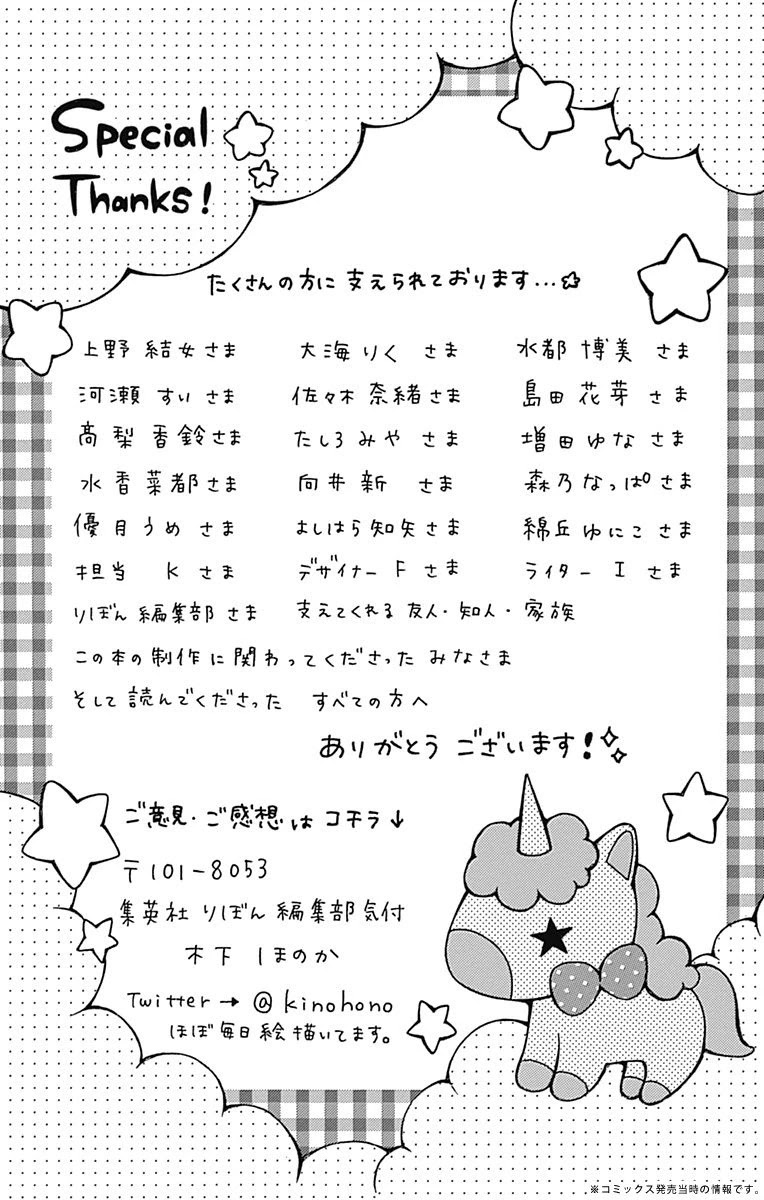 Special
Thanks!
たくさんの方に支えられております...☆
上野 結女さま 大海りく さま 水都 博美 さま
河瀬 すい さま 佐々木 奈緒さま 島田 花芽 さま
高梨 香鈴さま たしろ みや さま 増田ゆな さま
水香菜都さま 向井新 さま 森乃なっぱさま
優月うめ さま よしはら知矢さま 綿丘ゆにこさま
担当 K さま デザイナー F さま ライター I さま
りぼん編集部さま 支えてくれる友人・知人・家族
この本の制作に関わってくださったみなさま
そして読んでくださった すべての方へ
ありがとうございます!
ご意見・ご感想はコチラ↓
〒101-8053
集英社 りぼん編集部気付
木下 ほのか
Twitter→@kinohono
ほぼ毎日絵描いてます。
※コミックス発売当時の情報です。